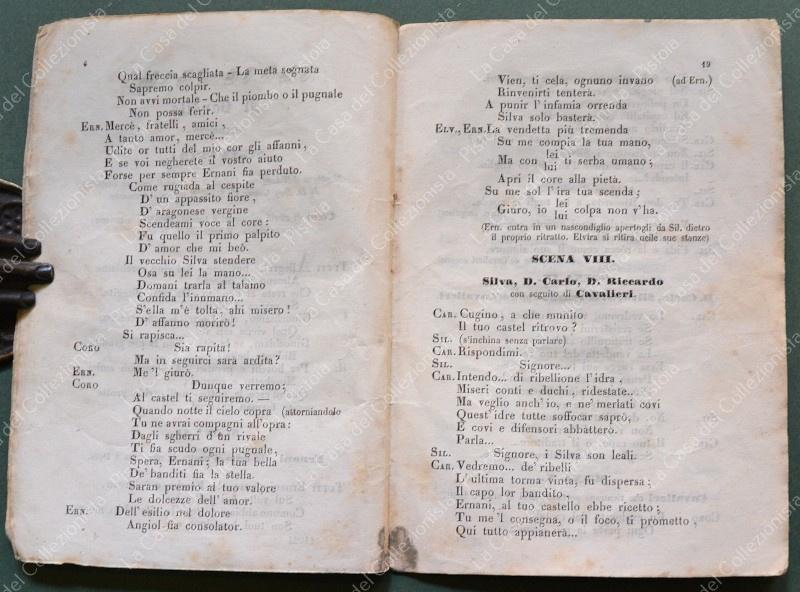 4
Qual freccia scagliata - La meta segnata
Sapremo colpir.
Non avvi mortale - Che il piombo o il pugnale
Non possa ferir.
ERN. Mercè, fratelli, amici,
A tanto amor, mercè...
Udite or tutti del mio cor gli affanni,
E se voi negherete il vostro aiuto
Forse per sempre Ernani fia perduto.
Come rugiada al cespite
D' un appassito fiore,
D' aragonese vergine
Scendeami voce al core:
Fu quello il primo palpito
D' amor che mi beò.
Il vecchio Silva stendere
Osa su lei la mano...
Domani trarla al talamo
Confida l'inumano...
S'ella m'è tolta, ahi misero!
D' affanno morirò!
Si rapisca...
CORO Sia rapita!
Ma in seguirci sarà ardita?
ERN. Me 'l giurò.
CORO Dunque verremo;
Al castel ti seguiremo. —
Quando notte il cielo copra (attorniandolo
Tu ne avrai compagni all'opra:
Dagli sgherri d'un rivale
Ti fia scudo ogni pugnale,
Spera, Ernani; la tua bella
De' banditi fia la stella.
Saran premio al tuo valore
Le dolcezze dell' amor.
ERN. Dell'esilio nel dolore
Angiol fia consolator.
19
Vien, ti cela, ognuno invano (ad Ern.)
Rinvenirti tenterà.
A punir l' infamia orrenda
Silva solo basterà.
ELV., ERN. La vendetta più tremenda
Su me compia la tua mano,
Ma con lei ti serba umano;
lui
Apri il core alla pietà.
Su me sol l' ira tua scenda;
Giuro, in lei colpa non v'ha.
lui
(Ern. entra in un nascondiglio apertogli da Sil. dietro
il proprio ritratto. Elvira si ritira nelle sue stanze)
SCENA VIII.
Silva, D. Carlo, D. Riccardo
con seguito di Cavalieri.
CAR. Cugino, a che munito
Il tuo castel ritrovo?
SIL. (s'inchina senza parlare)
CAR. Rispondimi.
SIL. Signore...
CAR. Intendo... di ribellione l'idra,
Miseri conti e duchi, ridestate...
Ma veglio anch' io, e ne' merlati covi
Quest' idre tutte soffocar saprò,
E covi e difensori abbatterò.
Parla...
SIL. Signore, i Silva son leali.
CAR. Vedremo... de' ribelli
L' ultima torma vinta, fu dispersa;
Il capo lor bandito,
Ernani, al tuo castello ebbe ricetto;
Tu me 'l consegna, o il foco, ti prometto,
Qui tutto appianerà...
La Casa del Collezionista